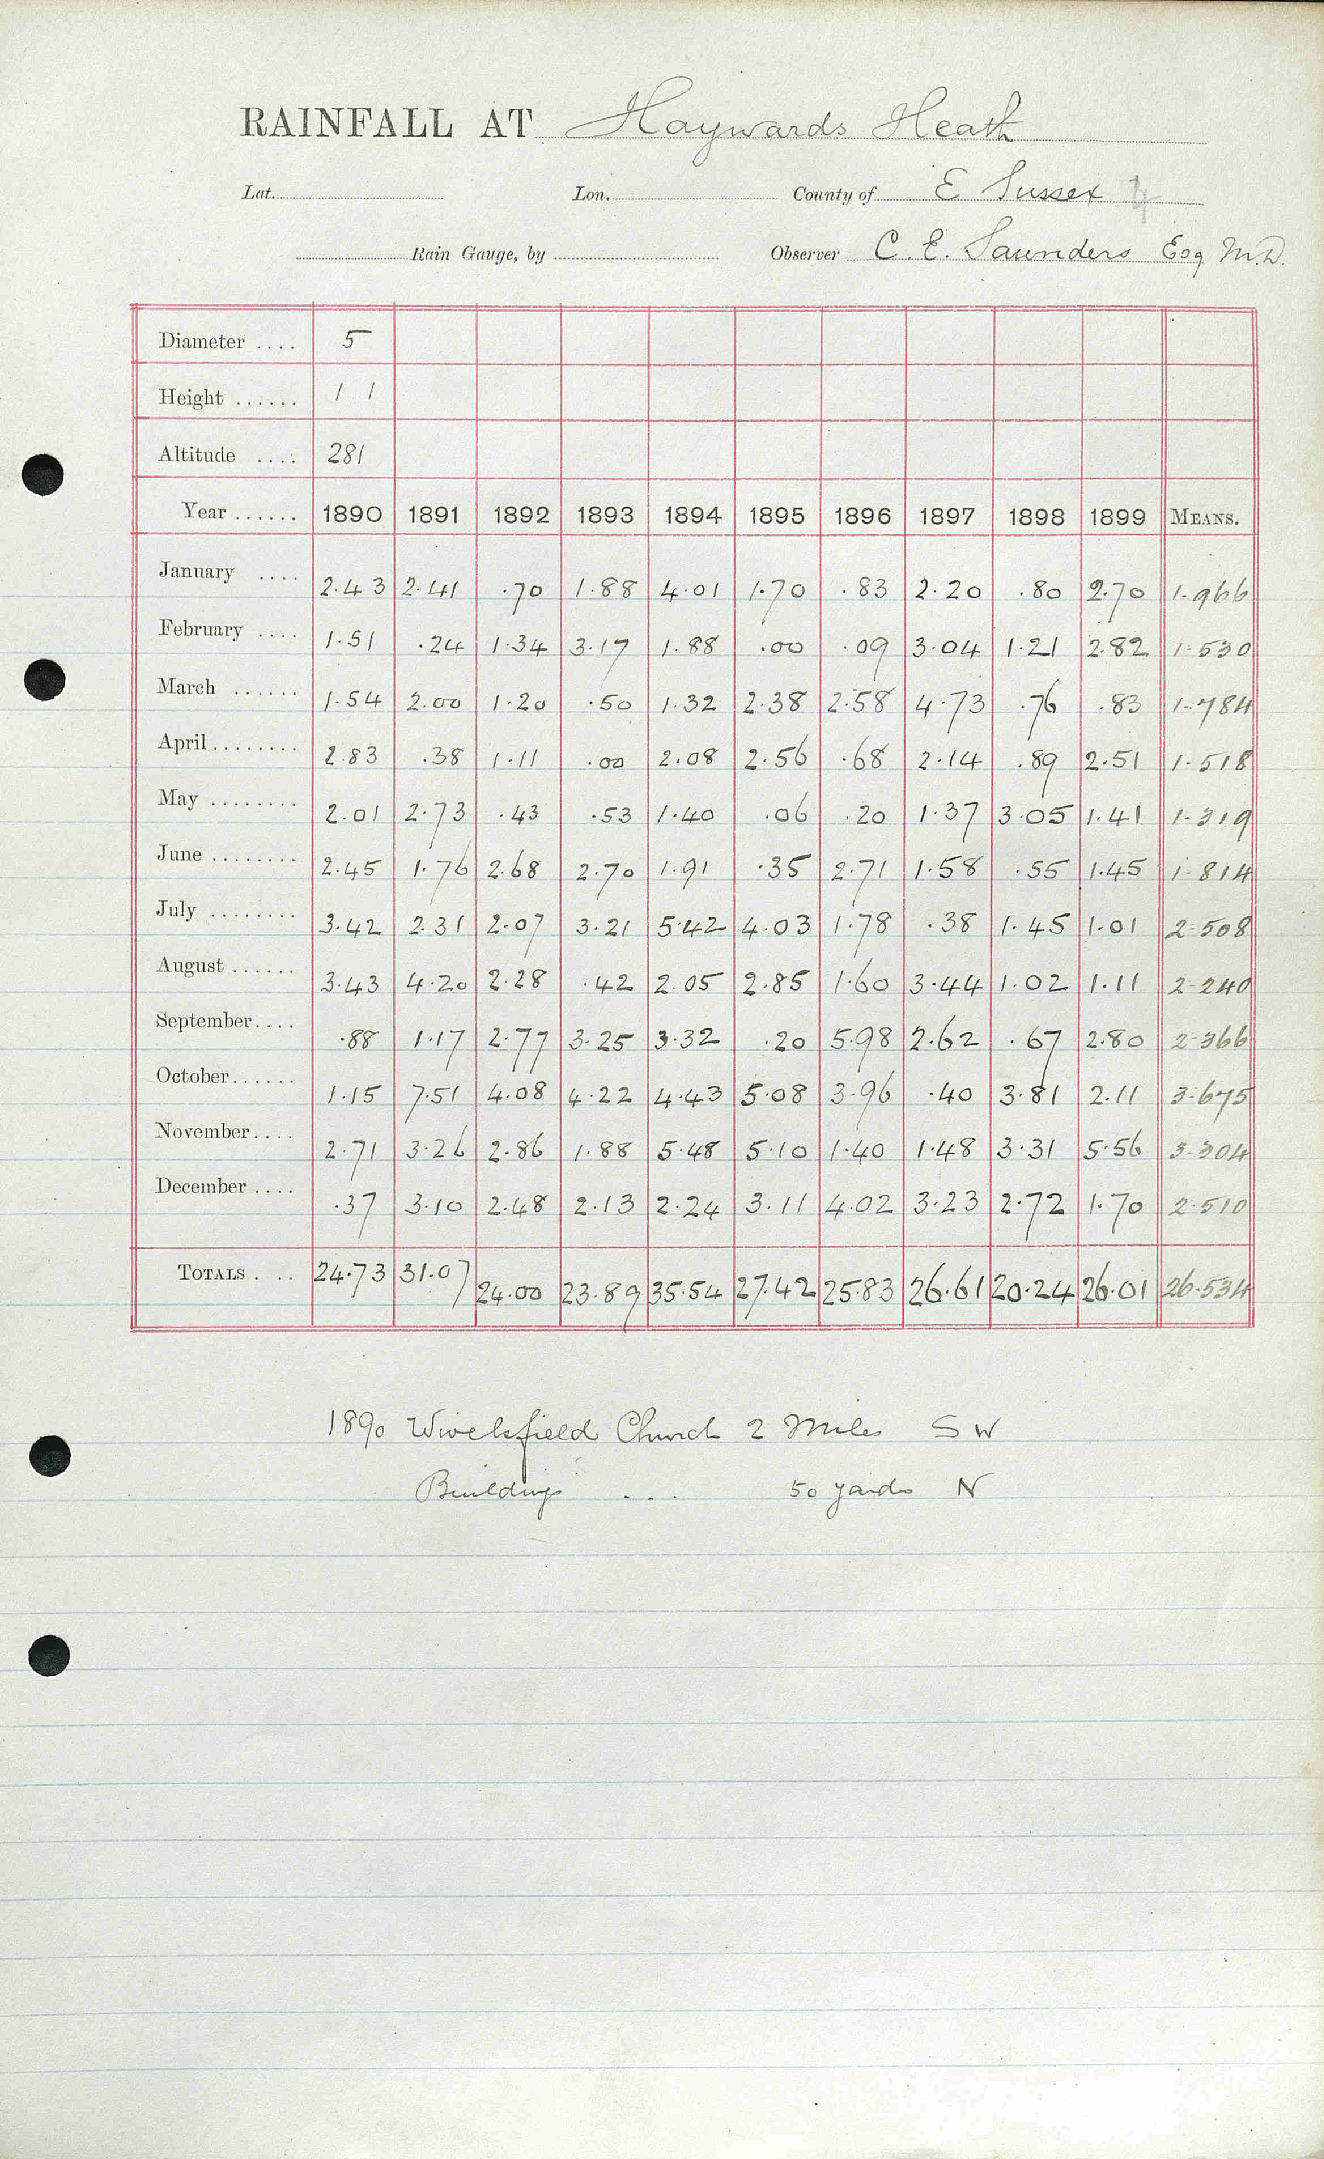 RAINFALL AT Haywards Heath
Lat. Lon. County of E Sussex 4
Rain Gauge, by Observer C. E. Saunders Esq M.D.
Diameter .... 5
Height ...... 1 1
Altitude .... 281
Year ...... 1890 1891 1892 1893 1894 1895 1896 1897 1898 1899 MEANS.
January .... 2.43 2.41 .70 1.88 4.01 1.70 .83 2.20 .80 2.70 1.966
February .... 1.51 .24 1.34 3.17 1.88 .00 .09 3.04 1.21 2.82 1.530
March ...... 1.54 2.00 1.20 .50 1.32 2.38 2.58 4.73 .76 .83 1.784
April ........ 2.83 .38 1.11 .00 2.08 2.56 .68 2.14 .89 2.51 1.518
May ........ 2.01 2.73 .43 .53 1.40 .06 .20 1.37 3.05 1.41 1.319
June ........ 2.45 1.76 2.68 2.70 1.91 .35 2.71 1.58 .55 1.45 1.814
July ........ 3.42 2.31 2.07 3.21 5.42 4.03 1.78 .38 1.45 1.01 2.508
August ...... 3.43 4.20 2.28 .42 2.05 2.85 1.60 3.44 1.02 1.11 2.240
September .... .88 1.17 2.77 3.25 3.32 .20 5.98 2.62 .67 2.80 2.366
October ...... 1.15 7.51 4.08 4.22 4.43 5.08 3.96 .40 3.81 2.11 3.675
November .... 2.71 3.26 2.86 1.88 5.48 5.10 1.40 1.48 3.31 5.56 3.304
December .... .37 3.10 2.48 2.13 2.24 3.11 4.02 3.23 2.72 1.70 2.510
TOTALS . .. 24.73 31.07 24.00 23.89 35.54 27.42 25.83 26.61 20.24 26.01 26.534
1890 Wivelsfield Church 2 Miles SW
Buildings ... 50 yards N